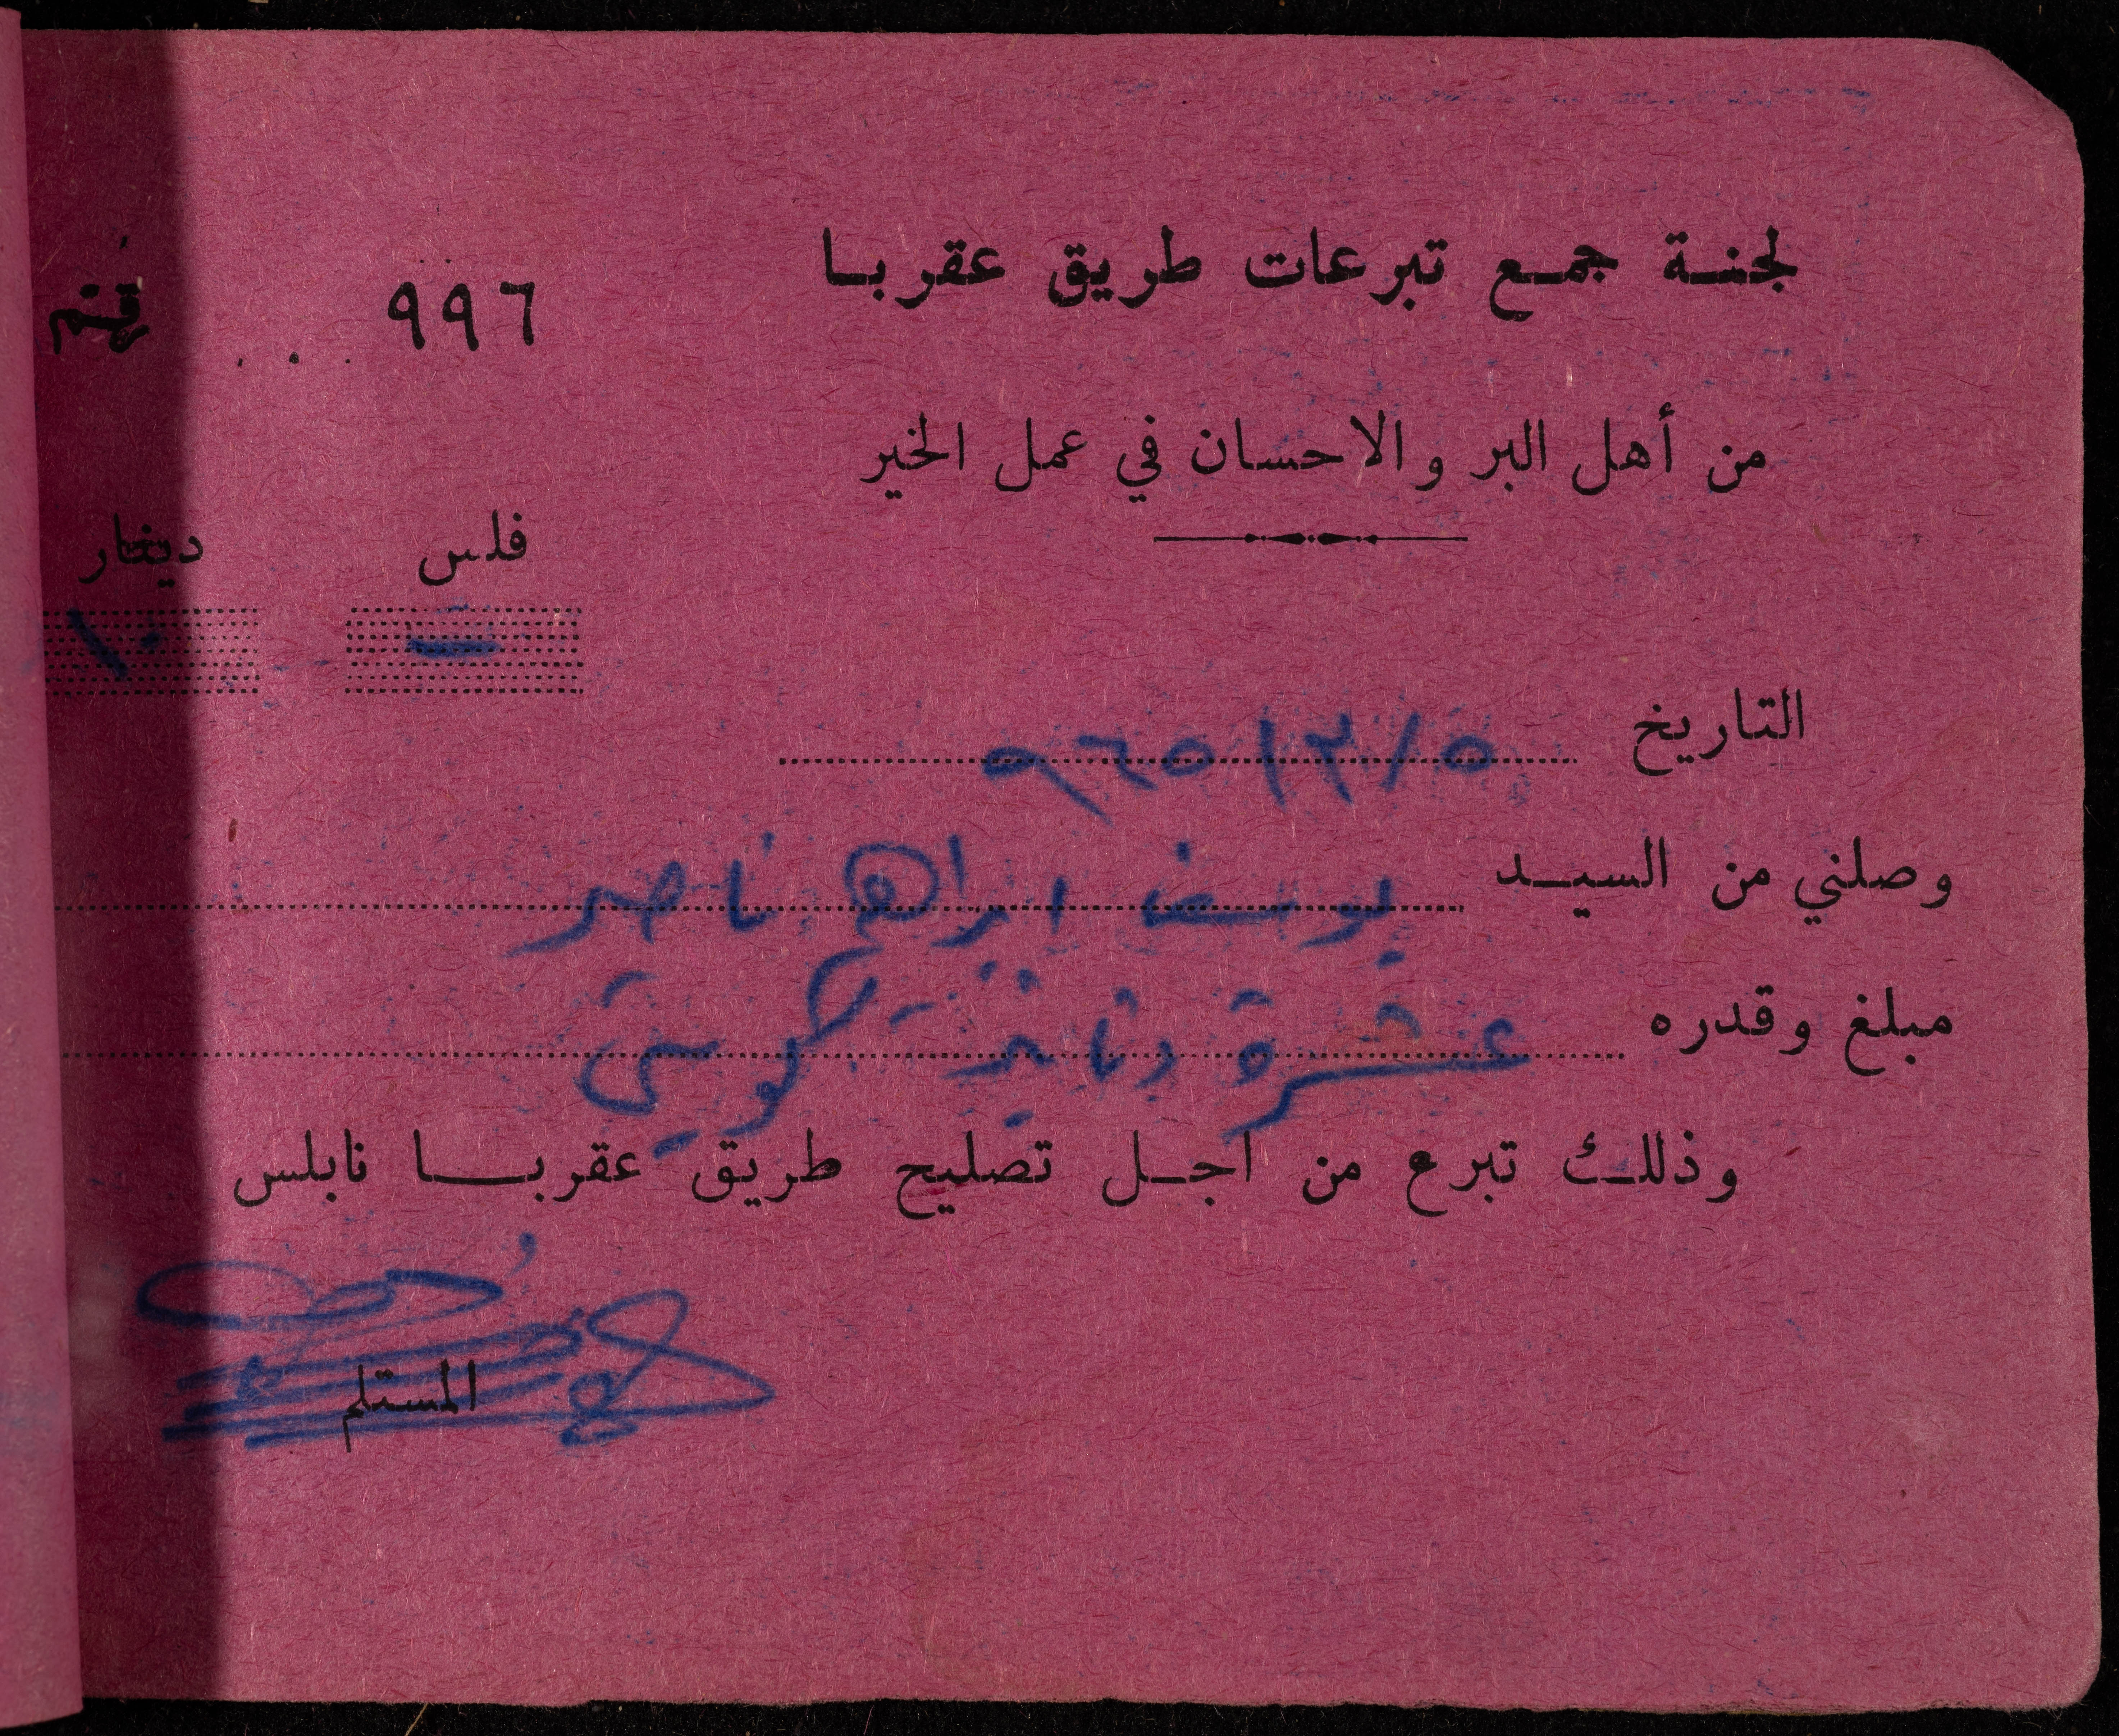 لجنة جمع تبرعات طريق عقربا
رقم ٩٩٦
من أهل البر والاحسان في عمل الخير
فلس دينار
- ١٠
التاريخ ٥/٣/٩٦٥
وصلني من السيد يوسف ابراهيم ناصر
مبلغ وقدره عشرة دنانير كويتي
وذلك تبرع من اجل تصليح طريق عقربا نابلس
المستلم